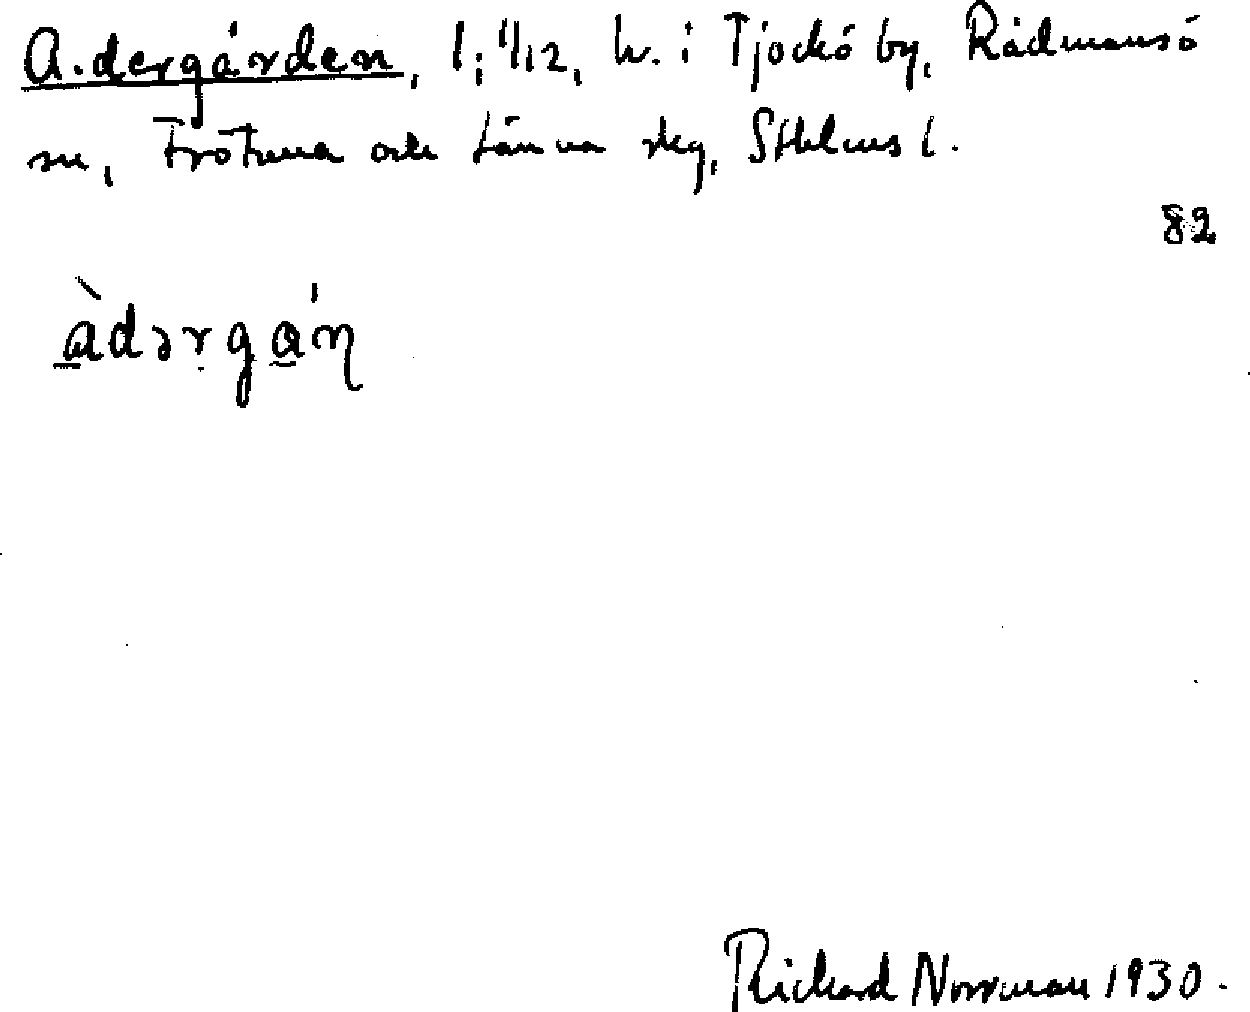 A.dergården, 1; 1/12, h. i Tjockö by, Rådmansö
sn, Frötuna och Länna skg, Sthlms l.
82
àdərgán
Richard Norrman 1930.